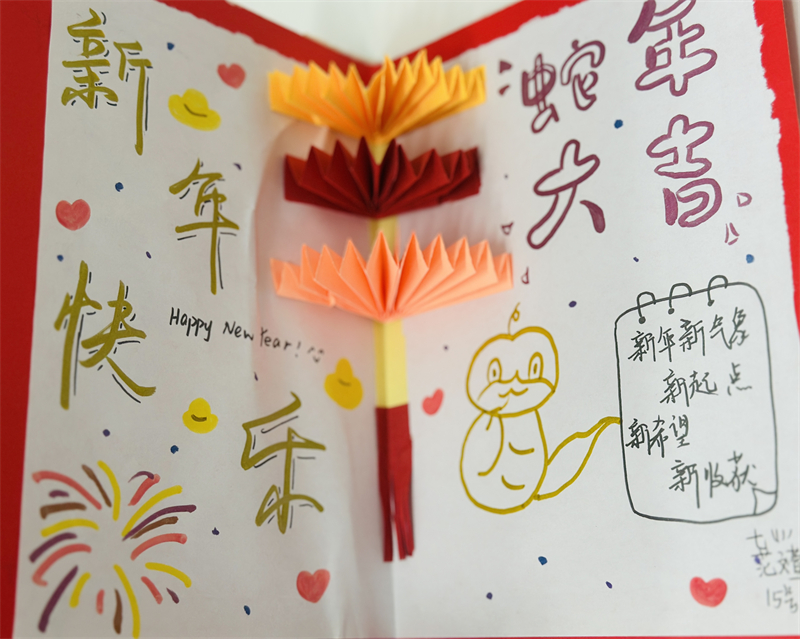 新
年
快
乐
Happy New Year!
蛇年
大吉
新年新气象
新起点
新希望
新收获
15号